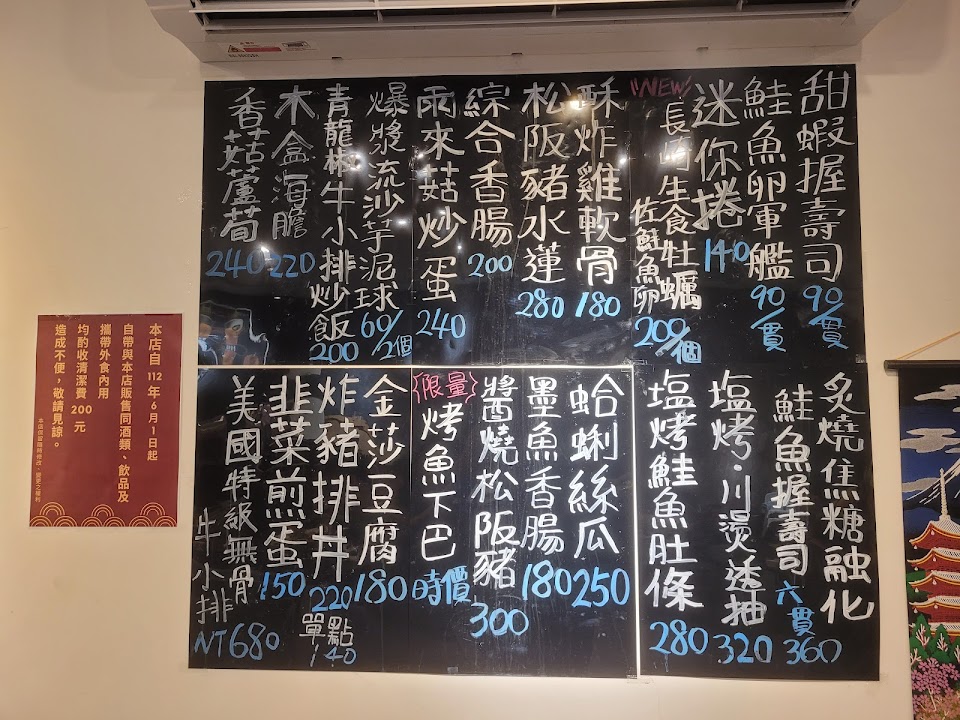 甜蝦握壽司 90/貫
鮭魚卵軍艦 90/貫
迷你捲 140
"NEW"
長崎生食牡蠣
佐鮭魚卵 200/個
酥炸雞軟骨 180
松阪豬水蓮 280
綜合香腸 200
雨來菇炒蛋 240
爆漿流沙芋泥球 60/2個
青龍椒牛小排炒飯 200
木盒海膽 220
香菇蘆筍 240
炙燒焦糖融化
鮭魚握壽司 六貫 360
塩烤·川燙透抽 320
塩烤鮭魚肚條 280
蛤蜊絲瓜 250
墨魚香腸 180
醬燒松阪豬 300
{限量}
烤魚下巴 時價
金莎豆腐 180
炸豬排丼 220
單點 140
韭菜煎蛋 150
美國特級無骨
牛小排 NT680
本店自 112 年 6 月 1 日起
自帶與本店販售同酒類、飲品及
攜帶外食內用
均酌收清潔費 200 元
造成不便，敬請見諒。